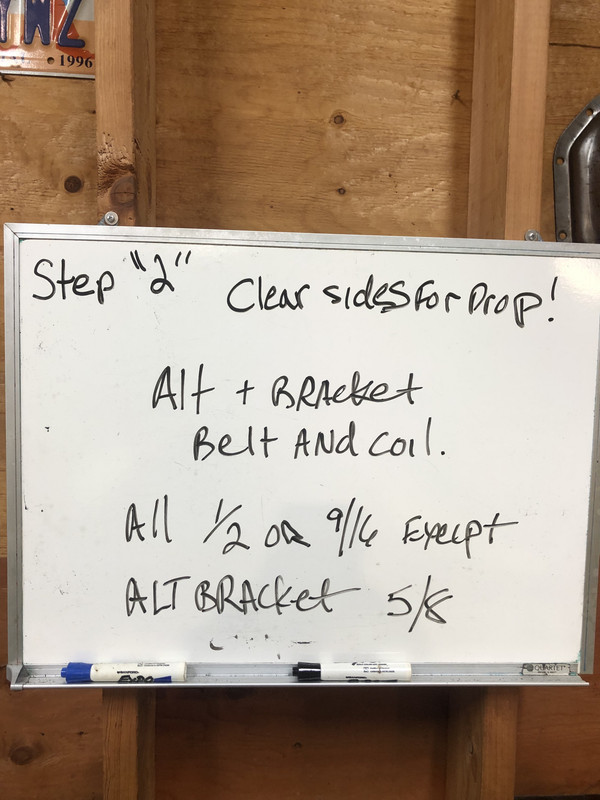 YWZ
1996
Step "2" Clear sides For Drop!
Alt + BRAcket
Belt AND coil.
All 1/2 OR 9/16 Except
ALT BRAcket 5/8
EXPO
QUARTET